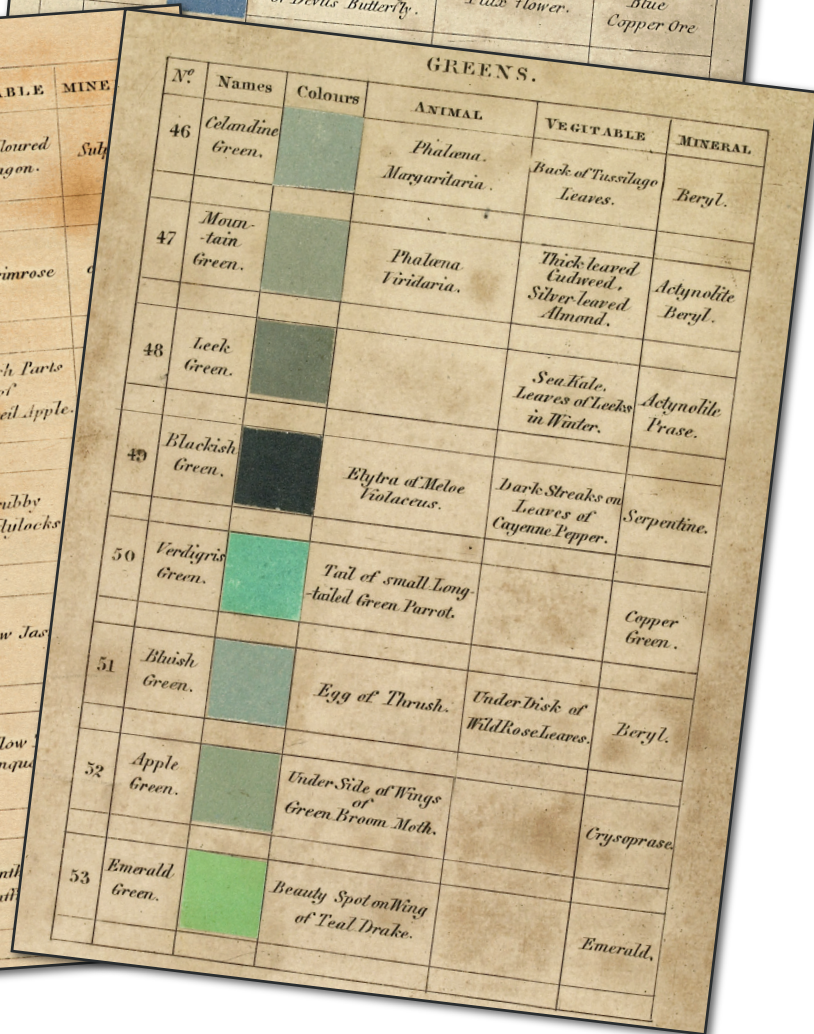 of Devils Butterfly.
Flax flower.
Blue
Copper Ore
ABLE
MINE
loured
gon.
Sulp
rimrose
h Parts
of
eil Apple.
ubby
dylocks
w Jas
low
nqu
GREENS.
No.
Names
Colours
ANIMAL
VEGITABLE
MINERAL
46
Celandine
Green.
Phalœna.
Margaritaria.
Back of Tussilago
Leaves.
Beryl.
47
Moun-
-tain
Green.
Phalœna
Viridaria.
Thick leaved
Cudweed,
Silver-leaved
Almond.
Actynolite
Beryl.
48
Leek
Green.
Sea Kale.
Leaves of Leeks
in Winter.
Actynolite
Prase.
49
Blackish
Green.
Elytra of Meloe
Violaceus.
Dark Streaks on
Leaves of
Cayenne Pepper.
Serpentine.
50
Verdigris
Green.
Tail of small Long-
-tailed Green Parrot.
Copper
Green.
51
Bluish
Green.
Egg of Thrush.
Under Disk of
Wild Rose Leaves.
Beryl.
52
Apple
Green.
Under Side of Wings
of
Green Broom Moth.
Crysoprase.
53
Emerald
Green.
Beauty Spot on Wing
of Teal Drake.
Emerald.